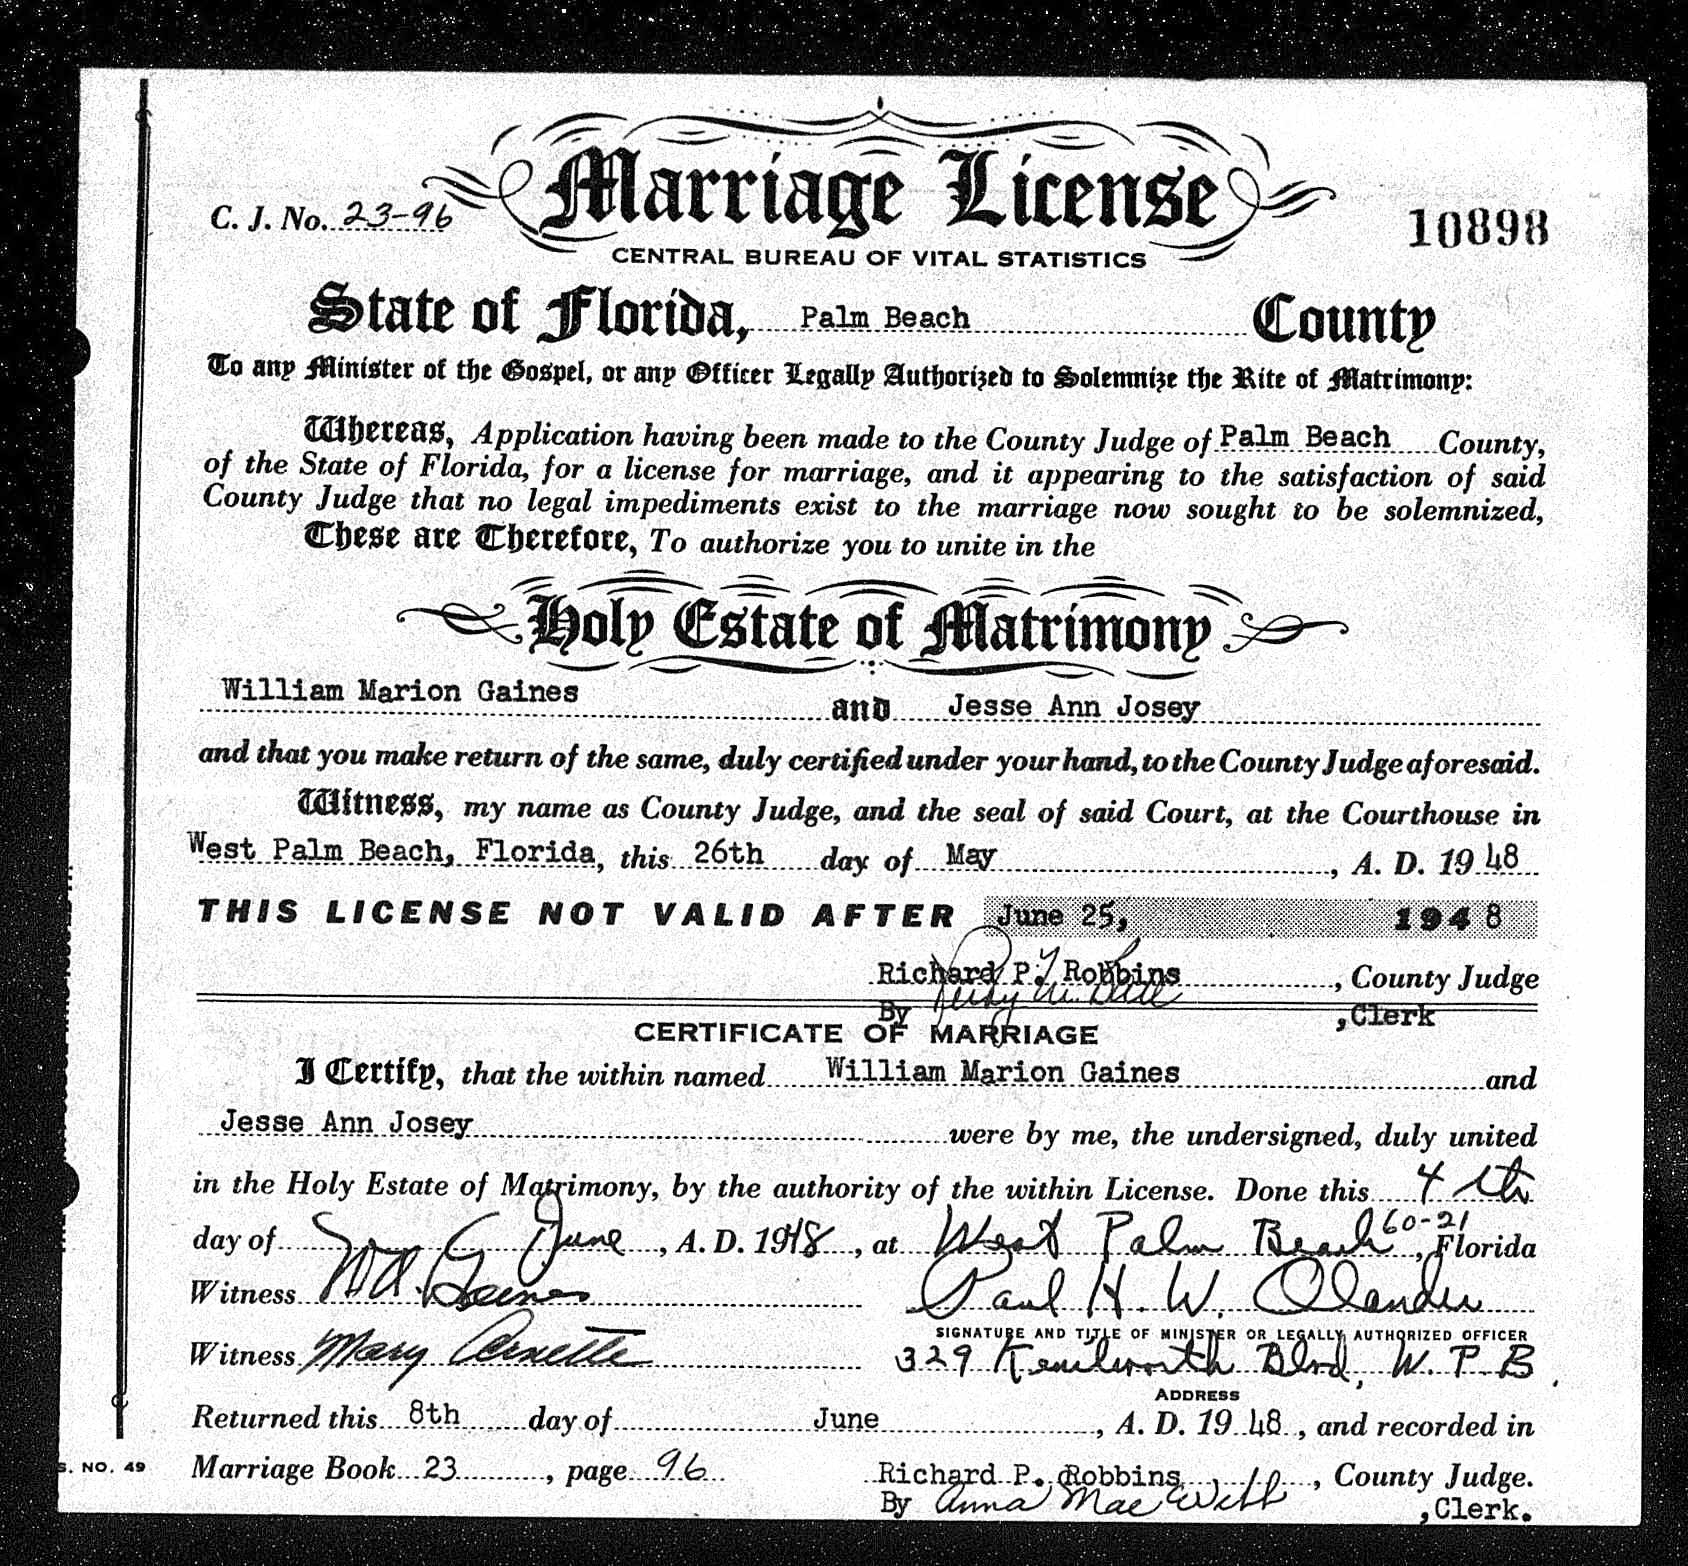 Marriage License
C. J. No. 23-96
10898
CENTRAL BUREAU OF VITAL STATISTICS
State of Florida, Palm Beach County
To any Minister of the Gospel, or any Officer Legally Authorized to Solemnize the Rite of Matrimony:
Whereas, Application having been made to the County Judge of Palm Beach County,
of the State of Florida, for a license for marriage, and it appearing to the satisfaction of said
County Judge that no legal impediments exist to the marriage now sought to be solemnized,
These are Therefore, To authorize you to unite in the
Holy Estate of Matrimony
William Marion Gaines and Jesse Ann Josey
and that you make return of the same, duly certified under your hand, to the County Judge aforesaid.
Witness, my name as County Judge, and the seal of said Court, at the Courthouse in
West Palm Beach, Florida, this 26th day of May, A. D. 1948
THIS LICENSE NOT VALID AFTER June 25, 1948
Richard P. Robbins, County Judge
By ,Clerk
CERTIFICATE OF MARRIAGE
I Certify, that the within named William Marion Gaines and
Jesse Ann Josey were by me, the undersigned, duly united
in the Holy Estate of Matrimony, by the authority of the within License. Done this 4th
day of June, A. D. 1948, at West Palm Beach 60-21, Florida
Witness Gaines Paul H. W. Olander
SIGNATURE AND TITLE OF MINISTER OR LEGALLY AUTHORIZED OFFICER
Witness Mary Arnette 329 Kenilworth Blvd, W. P. B.
ADDRESS
Returned this 8th day of June, A. D. 1948, and recorded in
S. NO. 49
Marriage Book 23, page 96 Richard P. Robbins, County Judge.
By Anna Mae Witt ,Clerk.